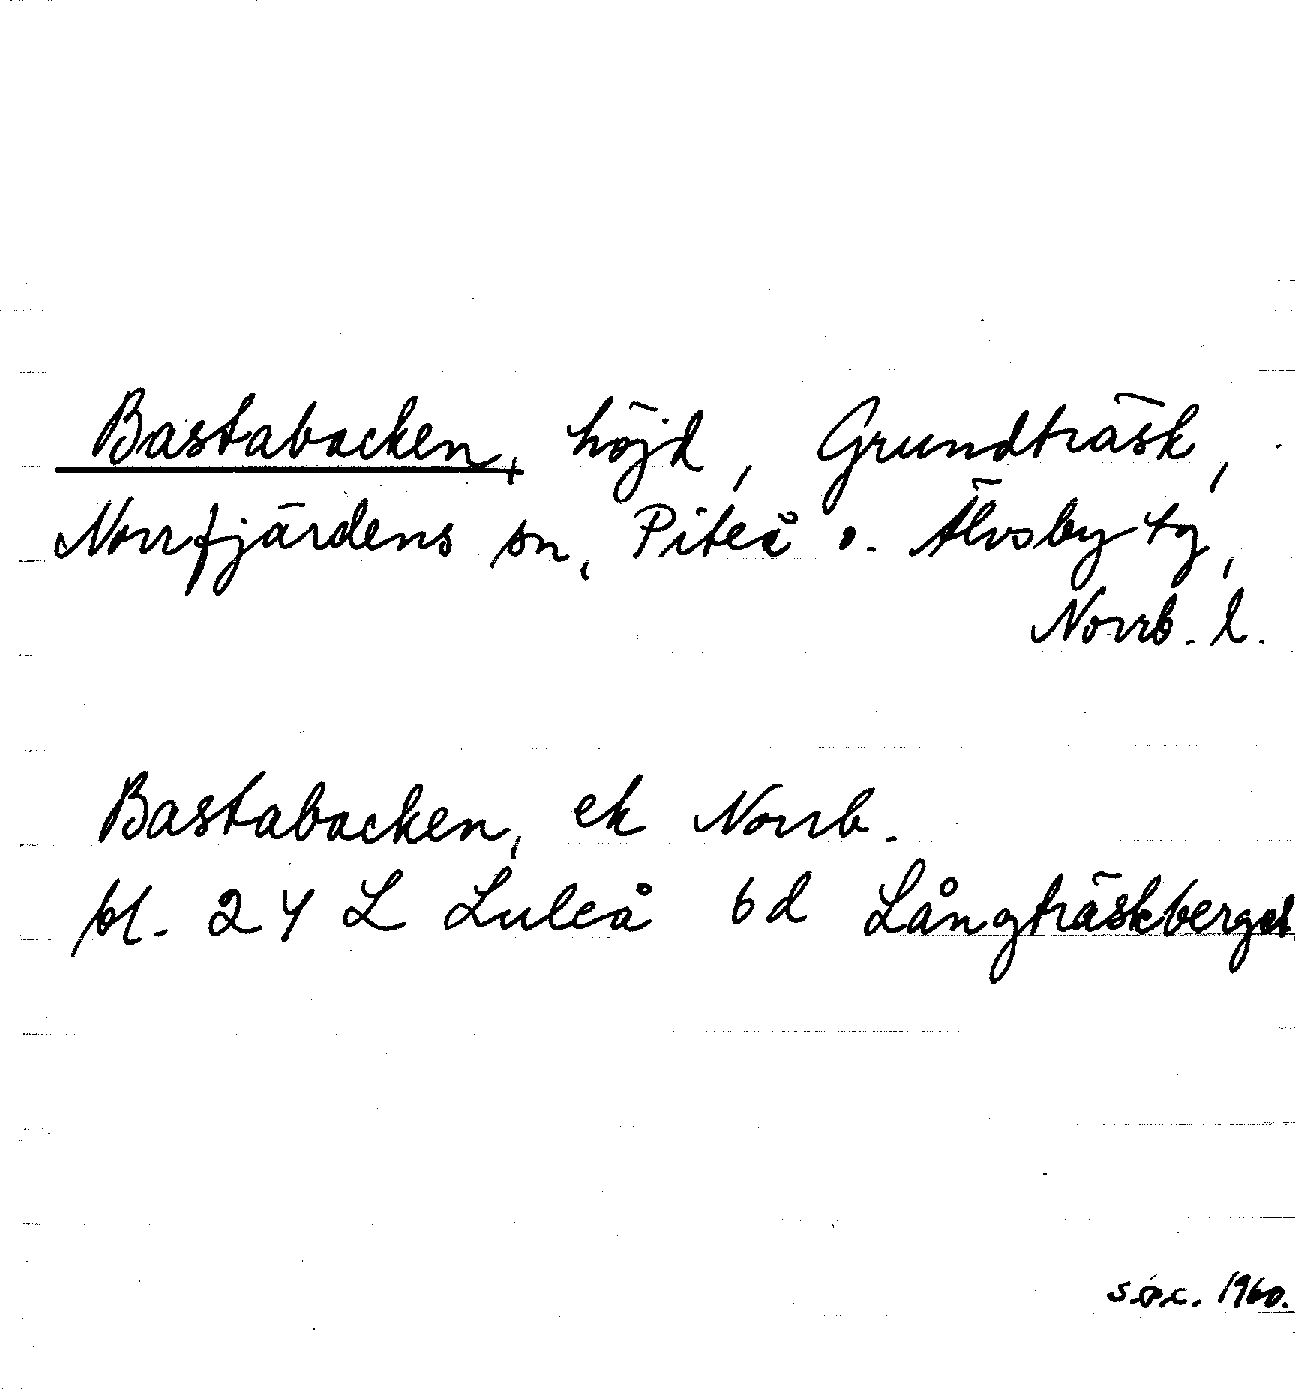 Bastabacken, höjd, Grundträsk,
Norrfjärdens sn, Piteå o. Älvsby tg,
Norrb. l.
Bastabacken, ek Norrb.
bl. 24 L Luleå 6d Långträskberget
S.O.C. 1960.